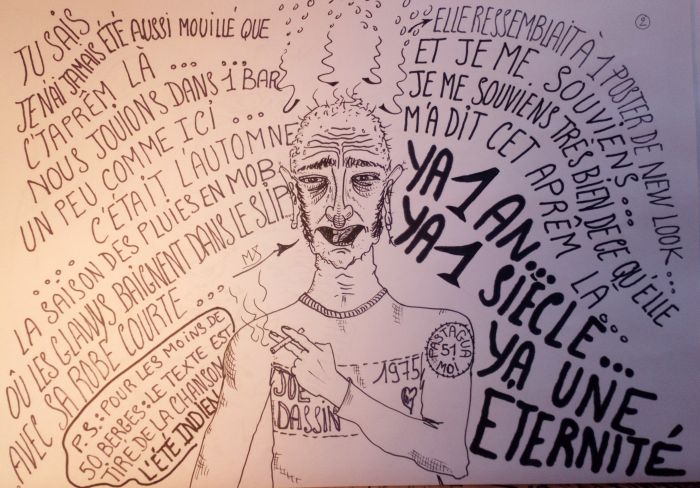 TU SAIS
JE N'AI JAMAIS ÉTÉ AUSSI MOUILLÉ QUE
C'TAPRÈM LÀ ... ...
NOUS JOUIONS DANS 1 BAR
UN PEU COMME ICI ...
C'ÉTAIT L'AUTOMNE
.... LA SAISON DES PLUIES EN MOB
OÙ LES GLAWIS BAIGNENT DANS LE SLIP
AVEC SA ROBE COURTE ...
ELLE RESSEMBLAIT À 1 POSTER DE NEW LOOK ...
ET JE ME SOUVIENS ...
JE ME SOUVIENS TRÈS BIEN DE CE QU'ELLE
M'A DIT CET APRÊM LA ...
YA 1 AN...
YA 1 SIÈCLE...
YA UNE
ÉTERNITÉ
2
P.S: POUR LES MOINS DE
50 BERGES: LE TEXTE EST
TIRE DE LA CHANSON
L'ÉTÉ INDIEN
JOE
DASSIN
1975
PASTAGUA
51
MOI